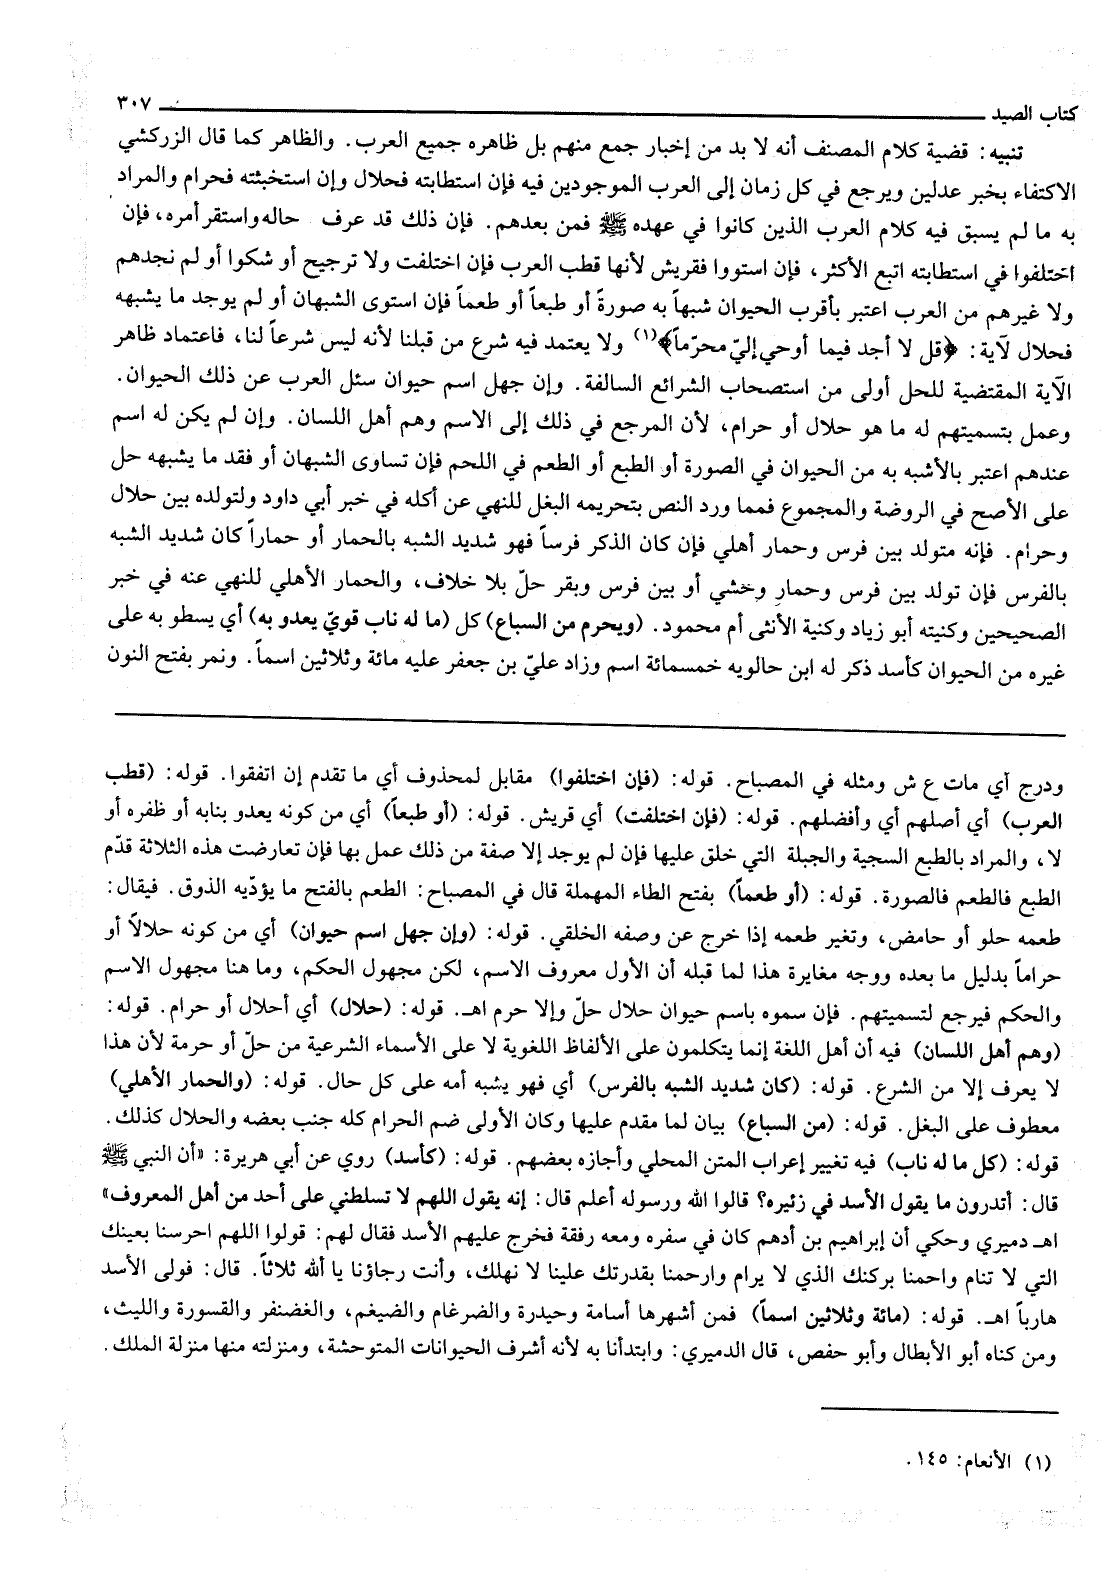 كتاب الصيد ٣٠٧
تنبيه: قضية كلام المصنف أنه لا بد من إخبار جمع منهم بل ظاهره جميع العرب. والظاهر كما قال الزركشي
الاكتفاء بخبر عدلين ويرجع في كل زمان إلى العرب الموجودين فيه فإن استطابته فحلال وإن استخبثته فحرام والمراد
به ما لم يسبق فيه كلام العرب الذين كانوا في عهده ﷺ فمن بعدهم. فإن ذلك قد عرف حاله واستقر أمره، فإن
اختلفوا في استطابته اتبع الأكثر، فإن استووا فقريش لأنها قطب العرب فإن اختلفت ولا ترجيح أو شكوا أو لم نجدهم
ولا غيرهم من العرب اعتبر بأقرب الحيوان شبهاً به صورةً أو طبعاً أو طعماً فإن استوى الشبهان أو لم يوجد ما يشبهه
فحلال لآية: ﴿قل لا أجد فيما أوحي إليّ محرّماً﴾(١) ولا يعتمد فيه شرع من قبلنا لأنه ليس شرعاً لنا، فاعتماد ظاهر
الآية المقتضية للحل أولى من استصحاب الشرائع السالفة. وإن جهل اسم حيوان سئل العرب عن ذلك الحيوان.
وعمل بتسميتهم له ما هو حلال أو حرام، لأن المرجع في ذلك إلى الاسم وهم أهل اللسان. وإن لم يكن له اسم
عندهم اعتبر بالأشبه به من الحيوان في الصورة أو الطبع أو الطعم في اللحم فإن تساوى الشبهان أو فقد ما يشبهه حل
على الأصح في الروضة والمجموع فمما ورد النص بتحريمه البغل للنهي عن أكله في خبر أبي داود ولتولده بين حلال
وحرام. فإنه متولد بين فرس وحمار أهلي فإن كان الذكر فرساً فهو شديد الشبه بالحمار أو حماراً كان شديد الشبه
بالفرس فإن تولد بين فرس وحمار وحشي أو بين فرس وبقر حلّ بلا خلاف، والحمار الأهلي للنهي عنه في خبر
الصحيحين وكنيته أبو زياد وكنية الأنثى أم محمود. (ويحرم من السباع) كل (ما له ناب قويّ يعدو به) أي يسطو به على
غيره من الحيوان كأسد ذكر له ابن حالويه خمسمائة اسم وزاد عليّ بن جعفر عليه مائة وثلاثين اسماً. ونمر بفتح النون
ودرج أي مات ع ش ومثله في المصباح. قوله: (فإن اختلفوا) مقابل لمحذوف أي ما تقدم إن اتفقوا. قوله: (قطب
العرب) أي أصلهم أي وأفضلهم. قوله: (فإن اختلفت) أي قريش. قوله: (أو طبعاً) أي من كونه يعدو بنابه أو ظفره أو
لا، والمراد بالطبع السجية والجبلة التي خلق عليها فإن لم يوجد إلا صفة من ذلك عمل بها فإن تعارضت هذه الثلاثة قدّم
الطبع فالطعم فالصورة. قوله: (أو طعماً) بفتح الطاء المهملة قال في المصباح: الطعم بالفتح ما يؤدّيه الذوق. فيقال:
طعمه حلو أو حامض، وتغير طعمه إذا خرج عن وصفه الخلقي. قوله: (وإن جهل اسم حيوان) أي من كونه حلالاً أو
حراماً بدليل ما بعده ووجه مغايرة هذا لما قبله أن الأول معروف الاسم، لكن مجهول الحكم، وما هنا مجهول الاسم
والحكم فيرجع لتسميتهم. فإن سموه باسم حيوان حلال حلّ وإلا حرم اهـ. قوله: (حلال) أي أحلال أو حرام. قوله:
(وهم أهل اللسان) فيه أن أهل اللغة إنما يتكلمون على الألفاظ اللغوية لا على الأسماء الشرعية من حلّ أو حرمة لأن هذا
لا يعرف إلا من الشرع. قوله: (كان شديد الشبه بالفرس) أي فهو يشبه أمه على كل حال. قوله: (والحمار الأهلي)
معطوف على البغل. قوله: (من السباع) بيان لما مقدم عليها وكان الأولى ضم الحرام كله جنب بعضه والحلال كذلك.
قوله: (كل ما له ناب) فيه تغيير إعراب المتن المحلي وأجازه بعضهم. قوله: (كأسد) روي عن أبي هريرة: «أن النبي ﷺ
قال: أتدرون ما يقول الأسد في زئيره؟ قالوا الله ورسوله أعلم قال: إنه يقول اللهم لا تسلطني على أحد من أهل المعروف»
اهـ دميري وحكي أن إبراهيم بن أدهم كان في سفره ومعه رفقة فخرج عليهم الأسد فقال لهم: قولوا اللهم احرسنا بعينك
التي لا تنام واحمنا بركنك الذي لا يرام وارحمنا بقدرتك علينا لا نهلك، وأنت رجاؤنا يا ألله ثلاثاً. قال: فولى الأسد
هارباً اهـ. قوله: (مائة وثلاثين اسماً) فمن أشهرها أسامة وحيدرة والضرغام والضيغم، والغضنفر والقسورة والليث،
ومن كناه أبو الأبطال وأبو حفص، قال الدميري: وابتدأنا به لأنه أشرف الحيوانات المتوحشة، ومنزلته منها منزلة الملك.
(١) الأنعام: ١٤٥.